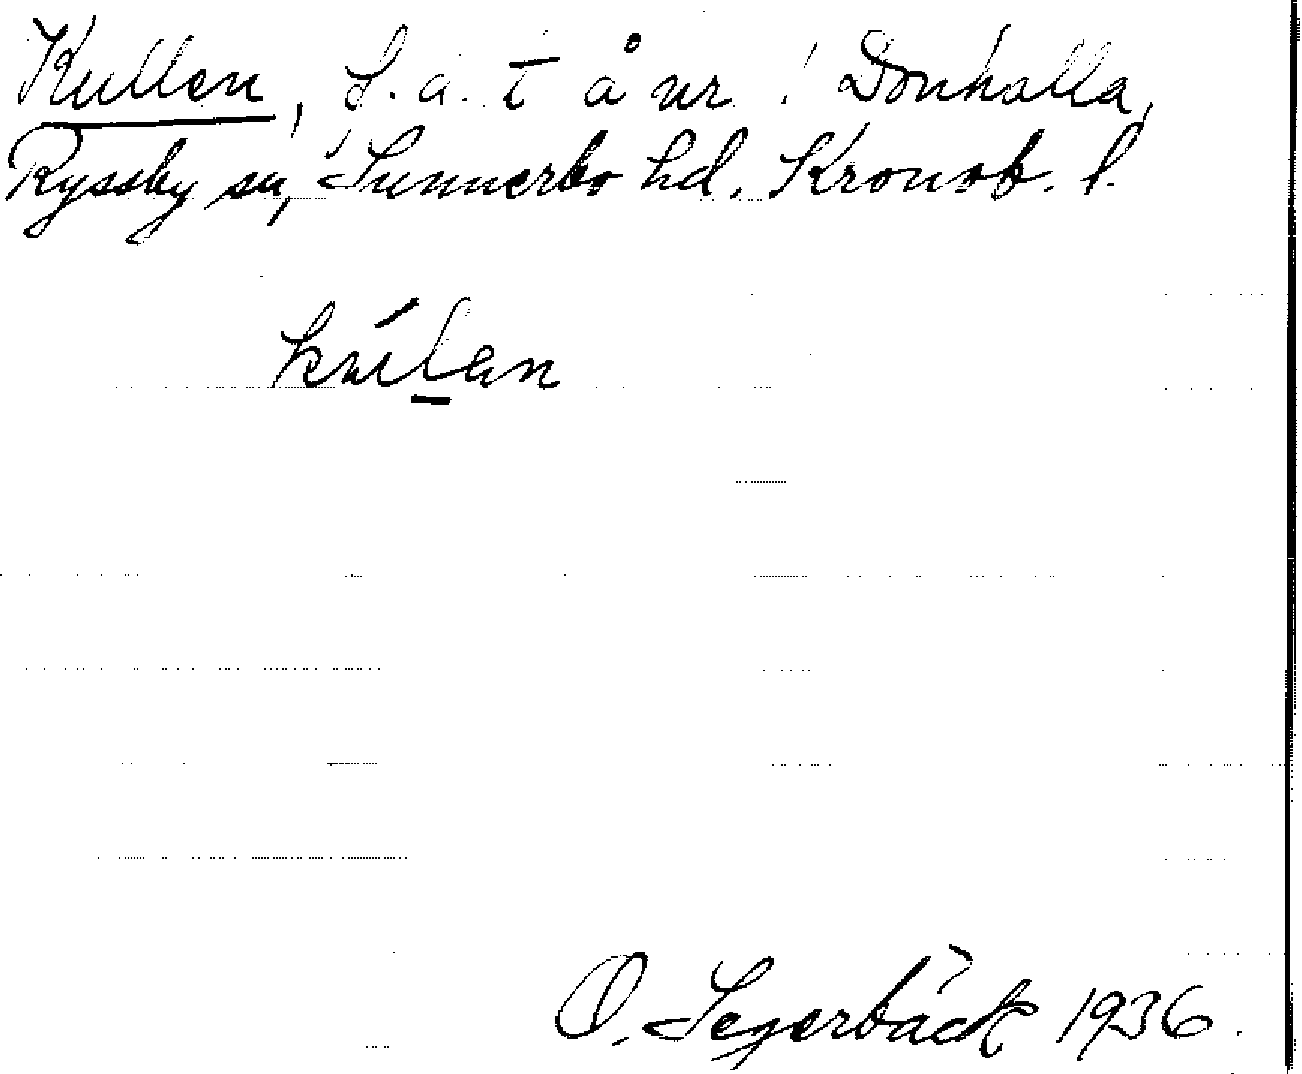 Kullen, S.a. t å nr 1 Donhalla,
Ryssby sn, Sunnerbo hd, Kronob. l.
kúlan
O. Segerbäck 1936.